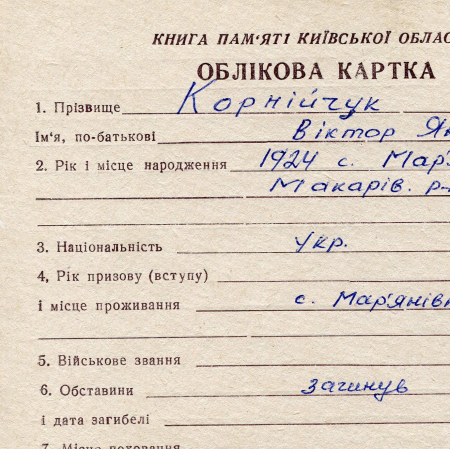 КНИГА ПАМ'ЯТІ КИЇВСЬКОЇ
ОБЛІКОВА КАРТКА
1. Прізвище Корнійчук
Ім'я, по-батькові Віктор
2. Рік і місце народження 1924 с.
Макарів.
3. Національність укр.
4, Рік призову (вступу)
і місце проживання с.
5. Військове звання
6. Обставини загинув
і дата загибелі
7. Місце поховання